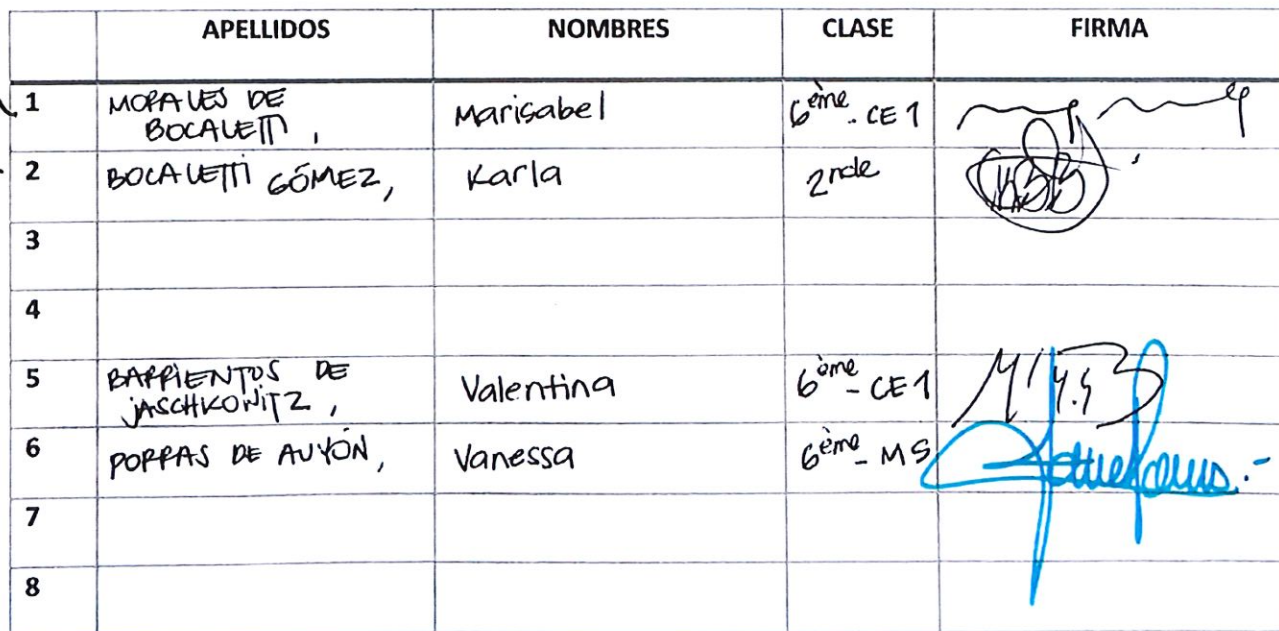 APELLIDOS NOMBRES CLASE FIRMA
1 MORALES DE BOCALETTI, Marisabel 6ème - CE1
2 BOCALETTI GÓMEZ, Karla 2nde
3
4
5 BARRIENTOS DE JASCHKOWITZ, Valentina 6ème - CE1
6 PORRAS DE AUYÓN, Vanessa 6ème - MS
7
8